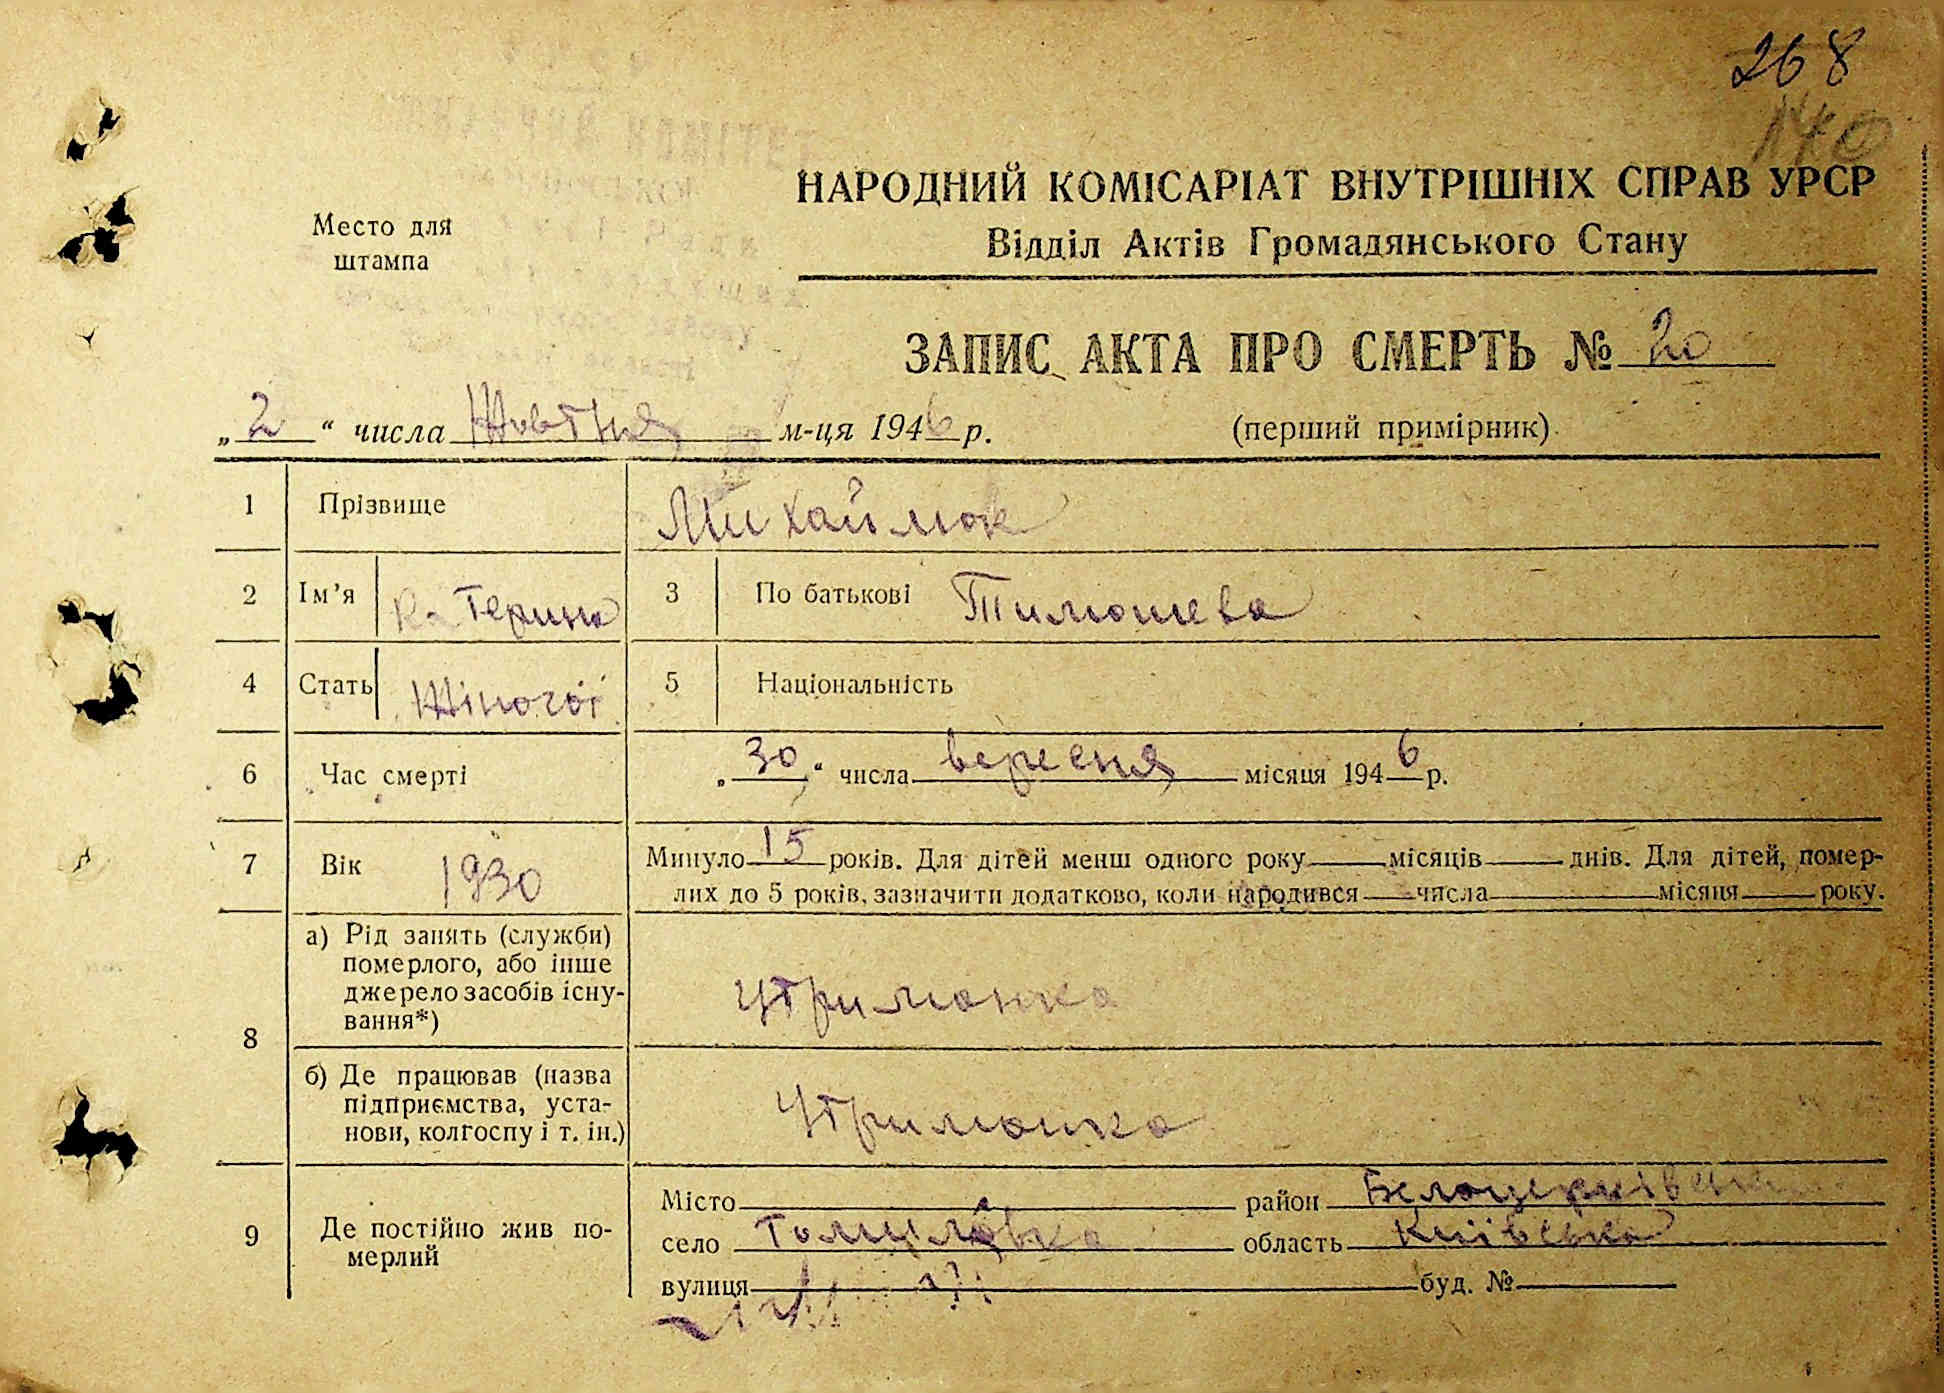 268
НАРОДНИЙ КОМІСАРІАТ ВНУТРІШНІХ СПРАВ УРСР
Відділ Актів Громадянського Стану
Место для
штампа
ЗАПИС АКТА ПРО СМЕРТЬ № 20
„ 2 “ числа Жовтня м-ця 1946 р.
(перший примірник)
1 Прізвище Михаймюк
2 Ім’я Катерина 3 По батькові Тимошева
4 Стать Жіночої 5 Національність
6 Час смерті „ 30 “ числа вересня місяця 1946 р.
7 Вік 1930 Минуло 15 років. Для дітей менш одного року місяців днів. Для дітей, помер-
лих до 5 років, зазначити додатково, коли народився числа місяця року.
8
а) Рід занять (служби)
померлого, або інше
джерело засобів існу-
вання*)
Утриманка
б) Де працював (назва
підприємства, уста-
нови, колгоспу і т. ін.)
Утриманка
9 Де постійно жив по-
мерлий
Місто район Белоцерківськ
село Томилівка область Київська
вулиця буд. №